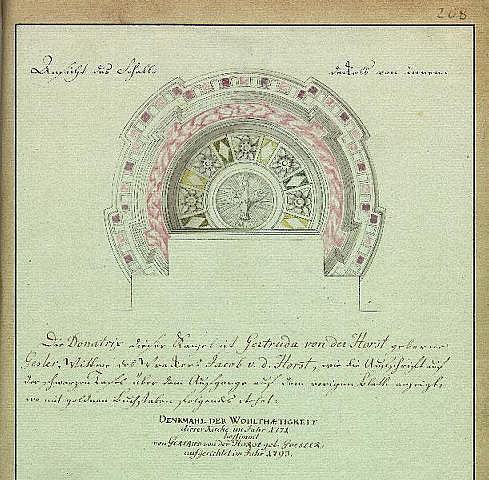 208
Ansicht des Schall- deckels von innen.
Die Donatrix dieser Kanzel ist Gertruda von der Horst geborne
Gesler, Wittwe des Brackers Jacob v. d. Horst, wie die Aufschrift auf
der schwarzen Tafel über dem Aufgange auf dem vorigen Blatt anzeigt,
wo mit goldnen Buchstaben folgendes steht:
DENKMAHL DER WOHLTHÆTIGKEIT
dieser Kirche im Jahr 1771
bestimmt
von GERTRUD von der HORST geb. GOESLER,
aufgerichtet im Jahr 1793.